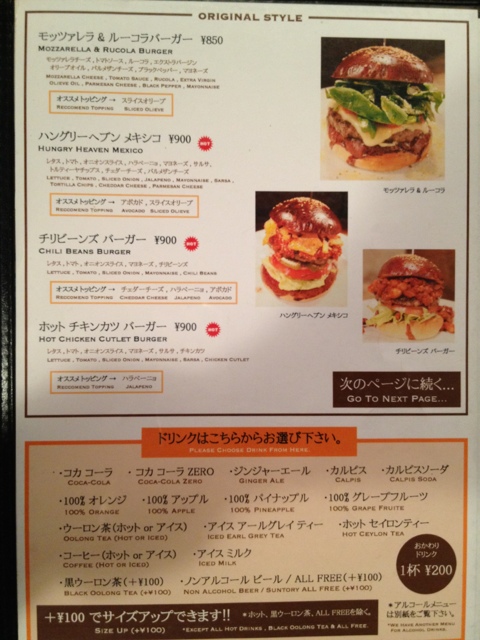 ORIGINAL STYLE
モッツァレラ & ルーコラバーガー ¥850
MOZZARELLA & RUCOLA BURGER
モッツァレラチーズ , トマトソース , ルーコラ , エクストラバージン
オリーブオイル , パルメザンチーズ , ブラックペッパー , マヨネーズ
MOZZARELLA CHEESE , TOMATO SAUCE , RUCOLA , EXTRA VIRGIN
OLIEVE OIL , PARMESAN CHEESE , BLACK PEPPER , MAYONNAISE
オススメトッピング → スライスオリーブ
RECCOMEND TOPPING SLICED OLIEVE
モッツァレラ & ルーコラ
ハングリーヘブン メキシコ ¥900 HOT
HUNGRY HEAVEN MEXICO
レタス , トマト , オニオンスライス , ハラペーニョ , マヨネーズ , サルサ ,
トルティーヤチップス , チェダーチーズ , パルメザンチーズ
LETTUCE , TOMATO , SLICED ONION , JALAPENO , MAYONNAISE , SARSA ,
TORTILLA CHIPS , CHEDDAR CHEESE , PARMESAN CHEESE
オススメトッピング → アボカド , スライスオリーブ
RECCOMEND TOPPING AVOCADO SLICED OLIEVE
チリビーンズ バーガー ¥900 HOT
CHILI BEANS BURGER
レタス , トマト , オニオンスライス , マヨネーズ , チリビーンズ
LETTUCE , TOMATO , SLICED ONION , MAYONNAISE , CHILI BEANS
オススメトッピング → チェダーチーズ , ハラペーニョ , アボカド
RECCOMEND TOPPING CHEDDAR CHEESE JALAPENO AVOCADO
ハングリーヘブン メキシコ
チリビーンズ バーガー
ホット チキンカツ バーガー ¥900 HOT
HOT CHICKEN CUTLET BURGER
レタス , トマト , オニオンスライス , マヨネーズ , サルサ , チキンカツ
LETTUCE , TOMATO , SLICED ONION , MAYONNAISE , SARSA , CHICKEN CUTLET
オススメトッピング → ハラペーニョ
RECCOMEND TOPPING JALAPENO
次のページに続く...
GO TO NEXT PAGE...
ドリンクはこちらからお選び下さい。
PLEASE CHOOSE DRINK FROM HERE.
・コカ コーラ ・コカ コーラ ZERO ・ジンジャーエール ・カルピス ・カルピスソーダ
COCA-COLA COCA-COLA ZERO GINGER ALE CALPIS CALPIS SODA
・100% オレンジ ・100% アップル ・100% パイナップル ・100% グレープフルーツ
100% ORANGE 100% APPLE 100% PINEAPPLE 100% GRAPE FRUITE
・ウーロン茶(ホット or アイス) ・アイス アールグレイ ティー ・ホット セイロンティー
OOLONG TEA (HOT OR ICED) ICED EARL GREY TEA HOT CEYLON TEA
・コーヒー(ホット or アイス) ・アイス ミルク
COFFEE (HOT OR ICED) ICED MILK
・黒ウーロン茶(+¥100) ・ノンアルコール ビール / ALL FREE(+¥100)
BLACK OOLONG TEA (+¥100) NON ALCOHOL BEER / SUNTORY ALL FREE (+¥100)
おかわり
ドリンク
1杯 ¥200
+¥100 でサイズアップできます!! *ホット、黒ウーロン茶、ALL FREEを除く。
SIZE UP (+¥100) *EXCEPT ALL HOT DRINKS , BLACK OOLONG TEA & ALL FREE.
*アルコールメニュー
は別紙をご覧下さい。
*WE HAVE ANOTHER MENU
FOR ALCOHOL DRINKS.